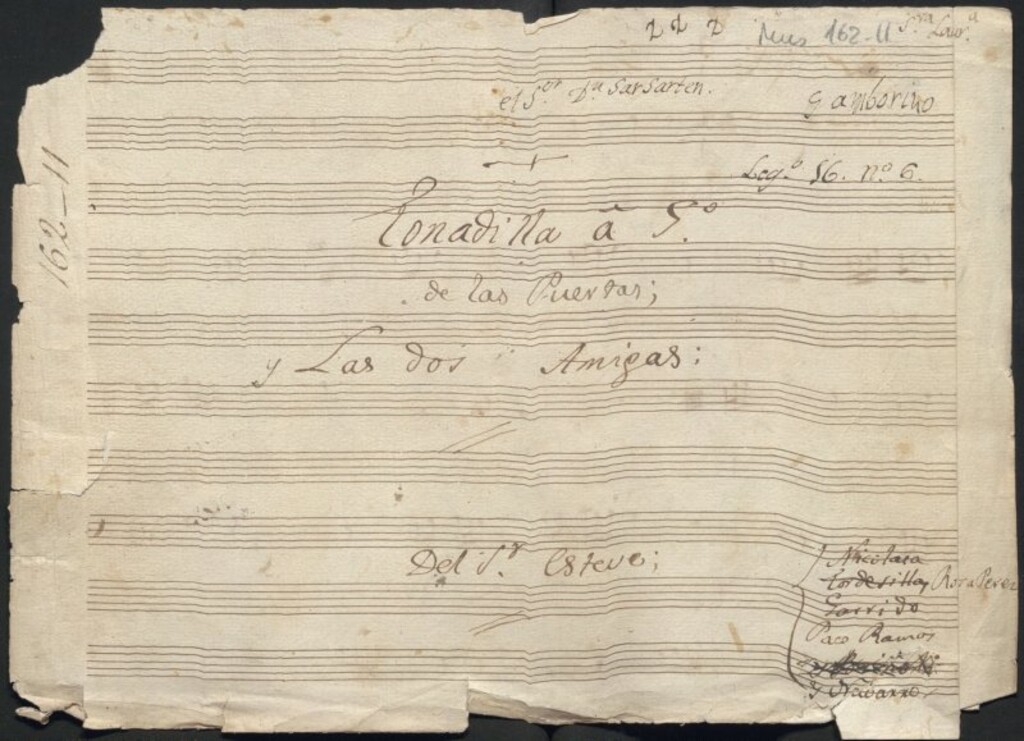 Mus 162-11
el S.or D.n Sarsarten.
Gamborino
Leg.o 16. n.o 6.
162-11
Tonadilla â 5.o
de las Puertas;
y Las dos Amigas:
Del S.r Esteve;
Nicolasa
Tordesillas Rosa Perez
Garrido
Paco Ramos
y Navarro